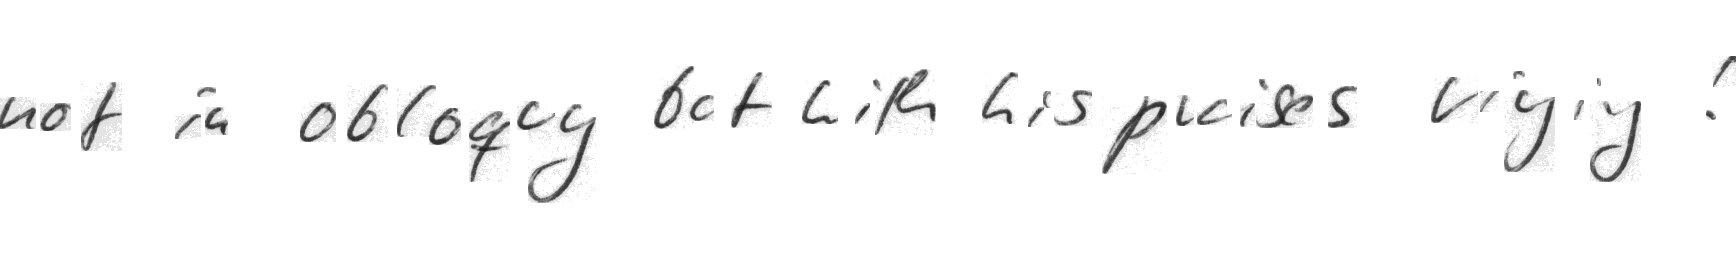 not in obloquy but with his praises viyiy !